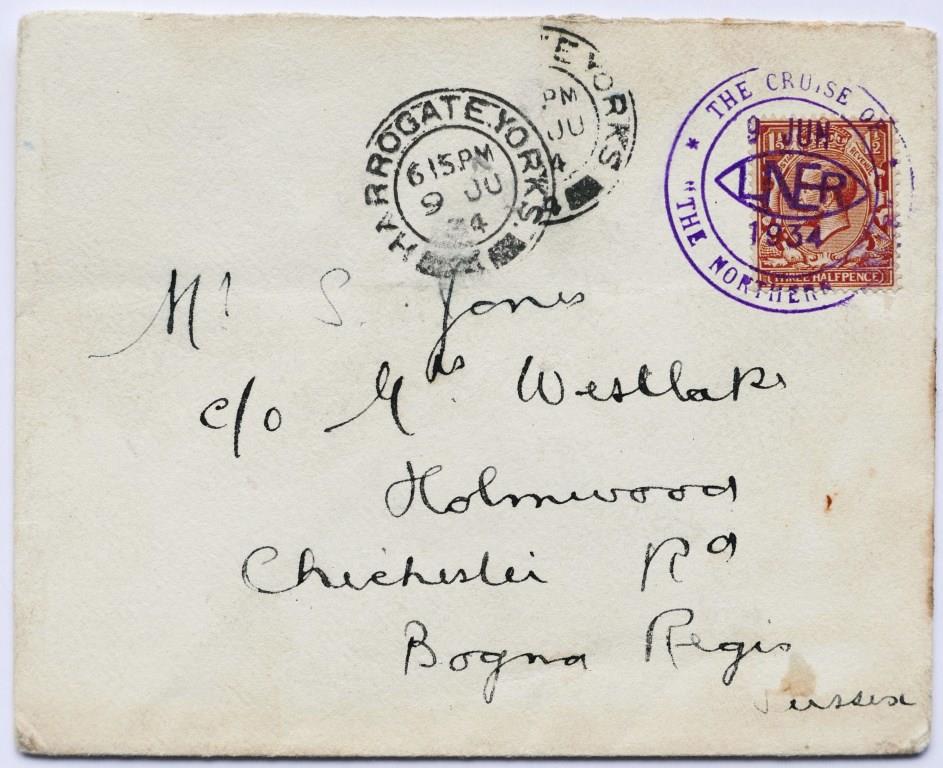 HARROGATE.YORKS.
6 15.PM
9 JU
34
TE.YORKS
PM
JU
4
* THE CRUISE OF
"THE NORTHERN
9 JUN
LNER
1934
THREE HALFPENCE
Mr S. Jones
c/o Mrs Westlake
Holmwood
Chichester Rd
Bognor Regis
Sussex